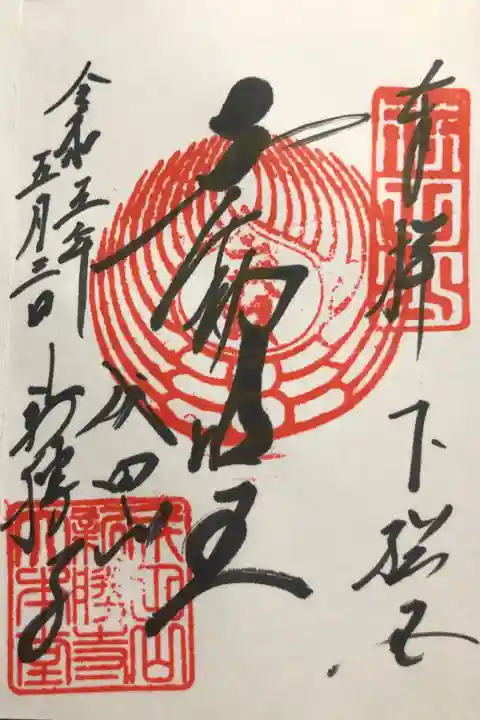 奉拝 下総国
不動明王
成田山
新勝寺
令和五年
五月三日
成田山
新勝寺
大本堂